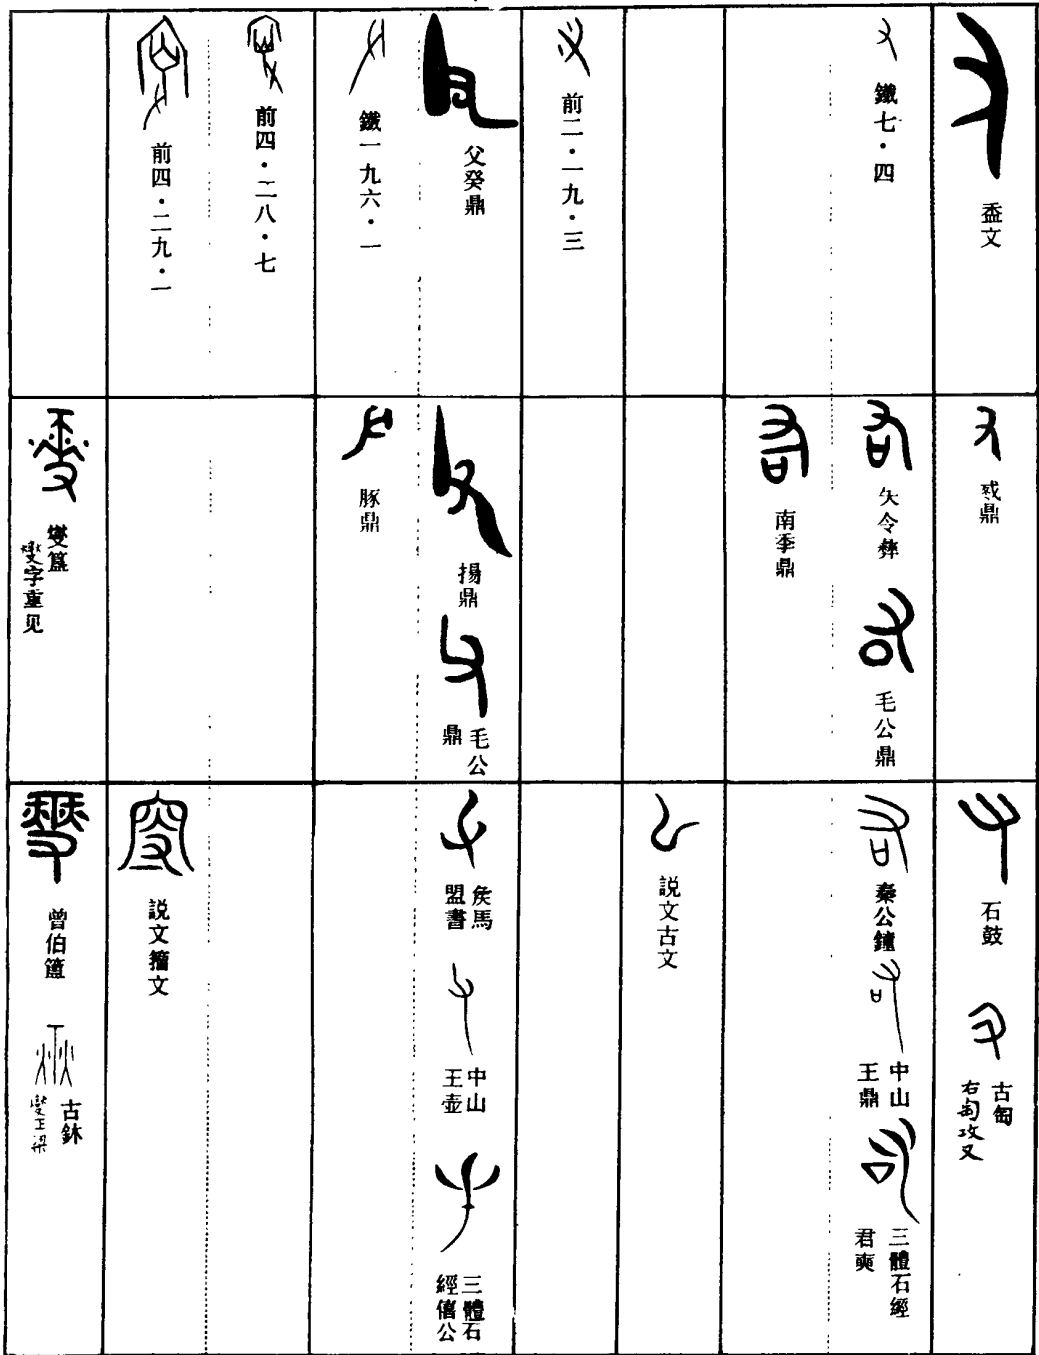 盉文
鐵七·四
前二·一九·三
父癸鼎
鐵一九六·一
前四·二八·七
前四·二九·一
𢦚鼎
矢令彝
毛公鼎
南季鼎
揚鼎
毛公
鼎
豚鼎
燮簋
燮字重见
石鼓
古匋
右匋攻又
秦公鐘
中山
王鼎
三體石經
君奭
説文古文
矦馬
盟書
中山
王壺
三體石
經僖公
説文籀文
曾伯簠
古鉥